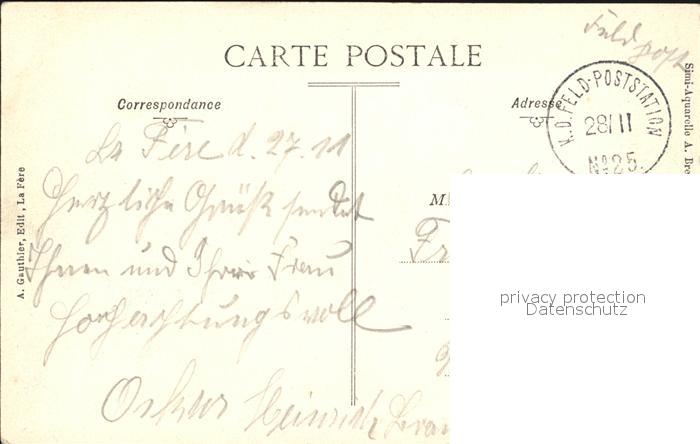 Feldpost
CARTE POSTALE
Correspondance
Adresse
K.D. FELD-POSTSTATION
28/11
No 25.
La Fère d. 27.11
Herzliche Grüße sendet
Ihnen und Ihrer Frau
hochachtungsvoll
Oskar Heinrich
A. Gauthier, Edit. La Fère
Simi-Aquarelle A. Bre
M
Fr
privacy protection
Datenschutz